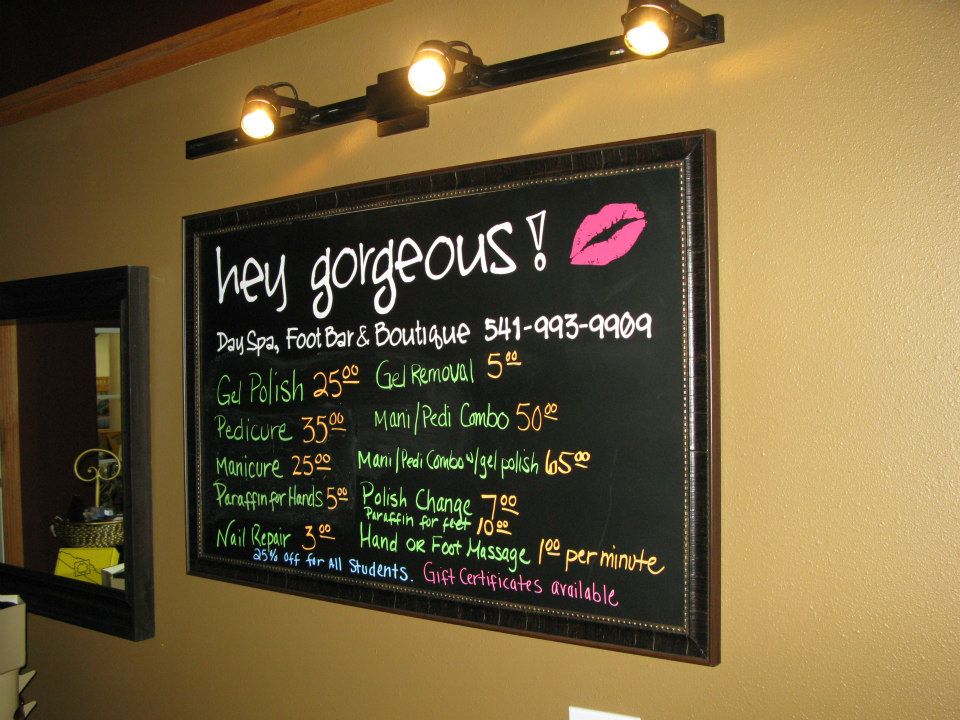 hey gorgeous!
Day Spa, Foot Bar & Boutique 541-993-9909
Gel Polish 25.00 Gel Removal 5.00
Pedicure 35.00 Mani/Pedi Combo 50.00
Manicure 25.00 Mani/Pedi Combo w/gel polish 65.00
Paraffin for Hands 5.00 Polish Change 7.00
Paraffin for feet 10.00
Nail Repair 3.00 Hand OR Foot Massage 1.00 per minute
25% off for All Students. Gift Certificates available